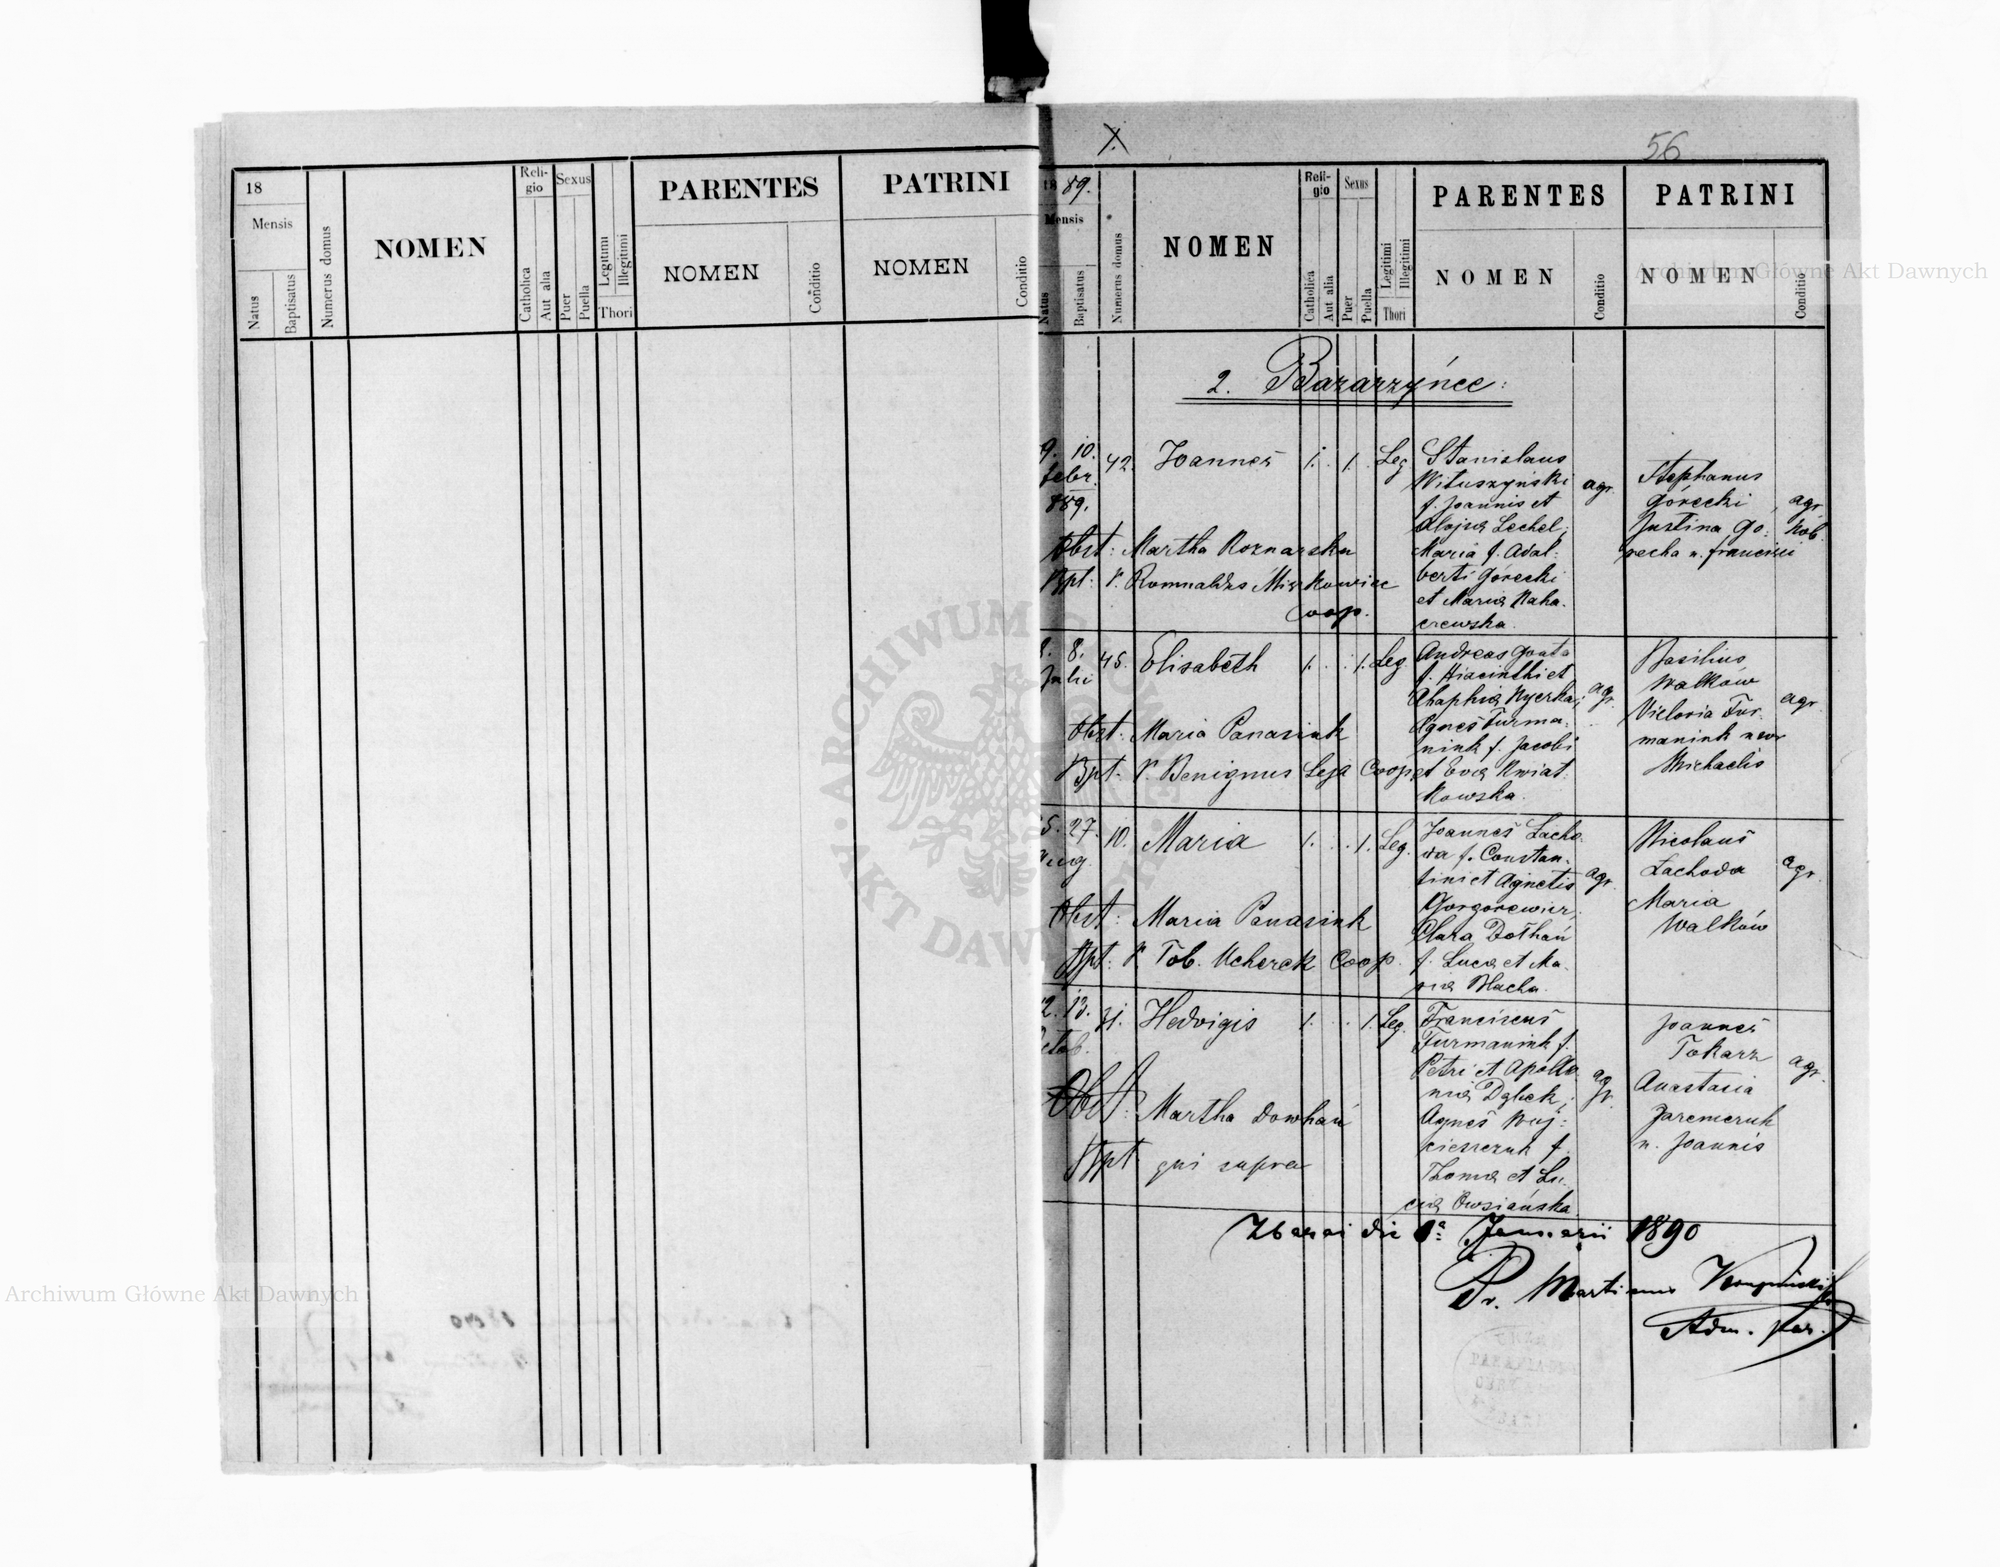 18
Mensis
Natus
Baptisatus
Numerus domus
NOMEN
Reli-
gio
Catholica
Aut alia
Sexus
Puer
Puella
Legitimi
Illegitimi
Thori
PARENTES
NOMEN
Conditio
PATRINI
NOMEN
Conditio
X.
56
1889.
Mensis
Natus
Baptisatus
Numerus domus
NOMEN
Reli-
gio
Catholica
Aut alia
Sexus
Puer
Puella
Legitimi
Illegitimi
Thori
PARENTES
NOMEN
Conditio
PATRINI
NOMEN
Conditio
2. Bazarzyńce:
9. 10.
febr.
889.
42.
Joannes
1. 1. Leg
Stanislaus
Wituszyński
f. Joannis et
Lechel;
Maria f. Adal-
berti Górecki
et Maria
agr.
Stephanus
Górecki, agr
Justina Go-
recka u. francisci
Obst: Martha Koznarska
Bpt: P. Romualdus
Coop.
8. 8.
Julii
45.
Elisabeth
1. 1. Leg.
Andreas
f. Hiacinthi et
Agnes Furma-
niuk f. Jacobi
et Eva Kwiat-
kowska.
agr.
Basilius
Walkow
Victoria Fur-
maniuk uxor
Michaelis
agr.
Obst: Maria Panasiuk
Bpt. P. Benignus Leja Coop.
5. 27.
Aug.
10.
Maria
1. 1. Leg.
Joannes Lacho-
da f. Constan-
tini et Agnetis
Clara Dołhań
f. Luca et Ma-
ria Blacha.
agr.
Nicolaus
Lachoda
Maria
Walków
agr.
Obst: Maria Panasiuk
Bpt: P. Tob. Ucherek Coop.
2. 13.
Octob.
31.
Hedvigis
1. 1. Leg.
Franciscus
Furmaniuk f.
Petri et Apollo-
nia Dąbek;
Agnes
f.
Thoma et Lu-
cia Owsiańska.
agr.
Joannes
Tokarz
Anastasia
Jaremczuk
u. Joannis
agr.
Obst: Martha Dowhań
Bpt. qui supra
Zbaraż die 1ª Januarii 1890
Pr. Martinus
Adm. par.
ARCHIWUM GŁÓWNE AKT DAWNYCH
Archiwum Główne Akt Dawnych
Archiwum Główne Akt Dawnych